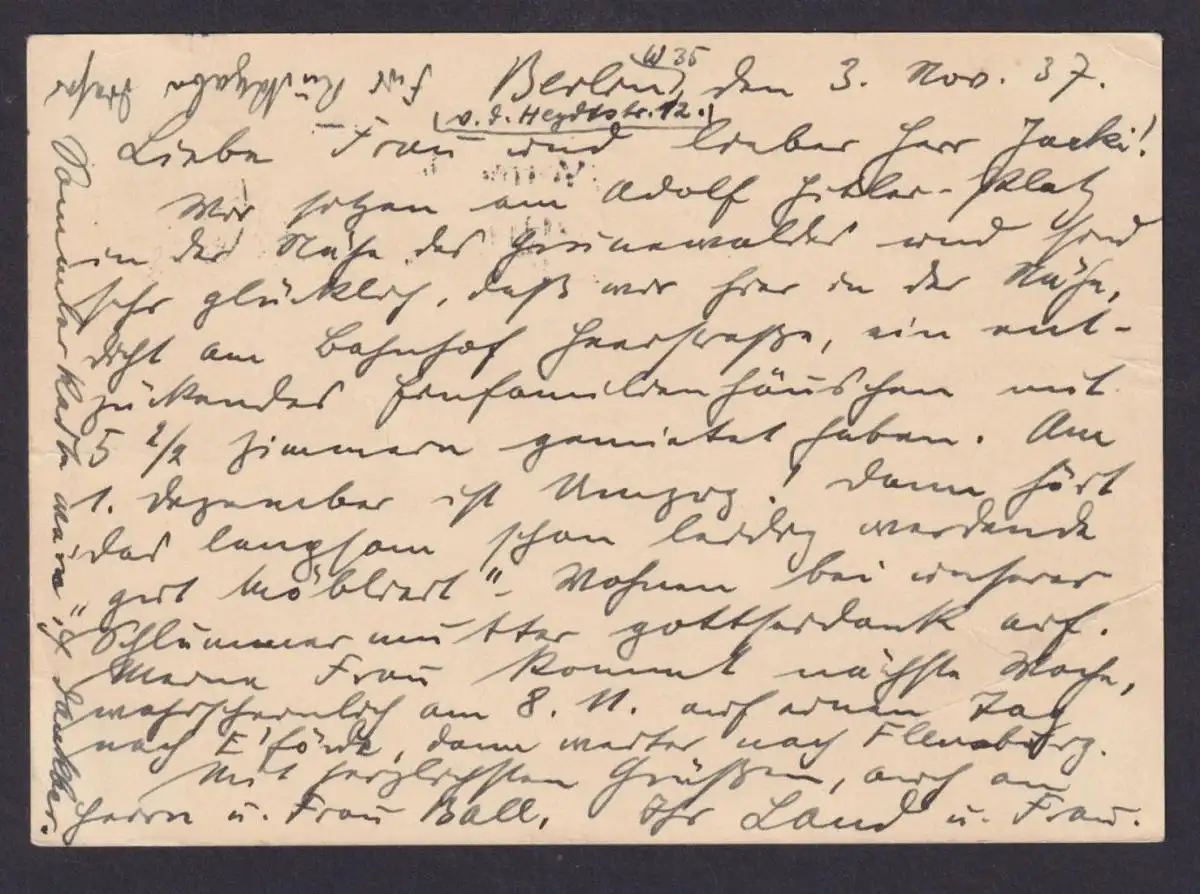 Berlin W 35, den 3. Nov. 37.
v. d. Heydtstr. 12.
Liebe Frau und lieber Herr Jacki!
Wir sitzen am Adolf Hitler-Platz
in der Nähe des Grunewaldes und sind
sehr glücklich, daß wir hier in der Nähe,
dicht am Bahnhof Heerstraße, ein ent-
zückendes Einfamilienhäuschen mit
5 2/2 Zimmern gemietet haben. Am
1. Dezember ist Umzug! Dann hört
das langsam schon leidig werdende
"gut möbliert"- Wohnen bei unserer
Schlummermutter gottseidank auf.
Meine Frau kommt nächste Woche,
wahrscheinlich am 8. 11. auf einen Tag
nach E'förde, dann weiter nach Flensburg.
Mit herzlichsten Grüßen, auch an
Herrn u. Frau Ball, Ihr Land u. Frau.
Für Rückgabe dieser
Sammlerkarte wäre ich dankbar.